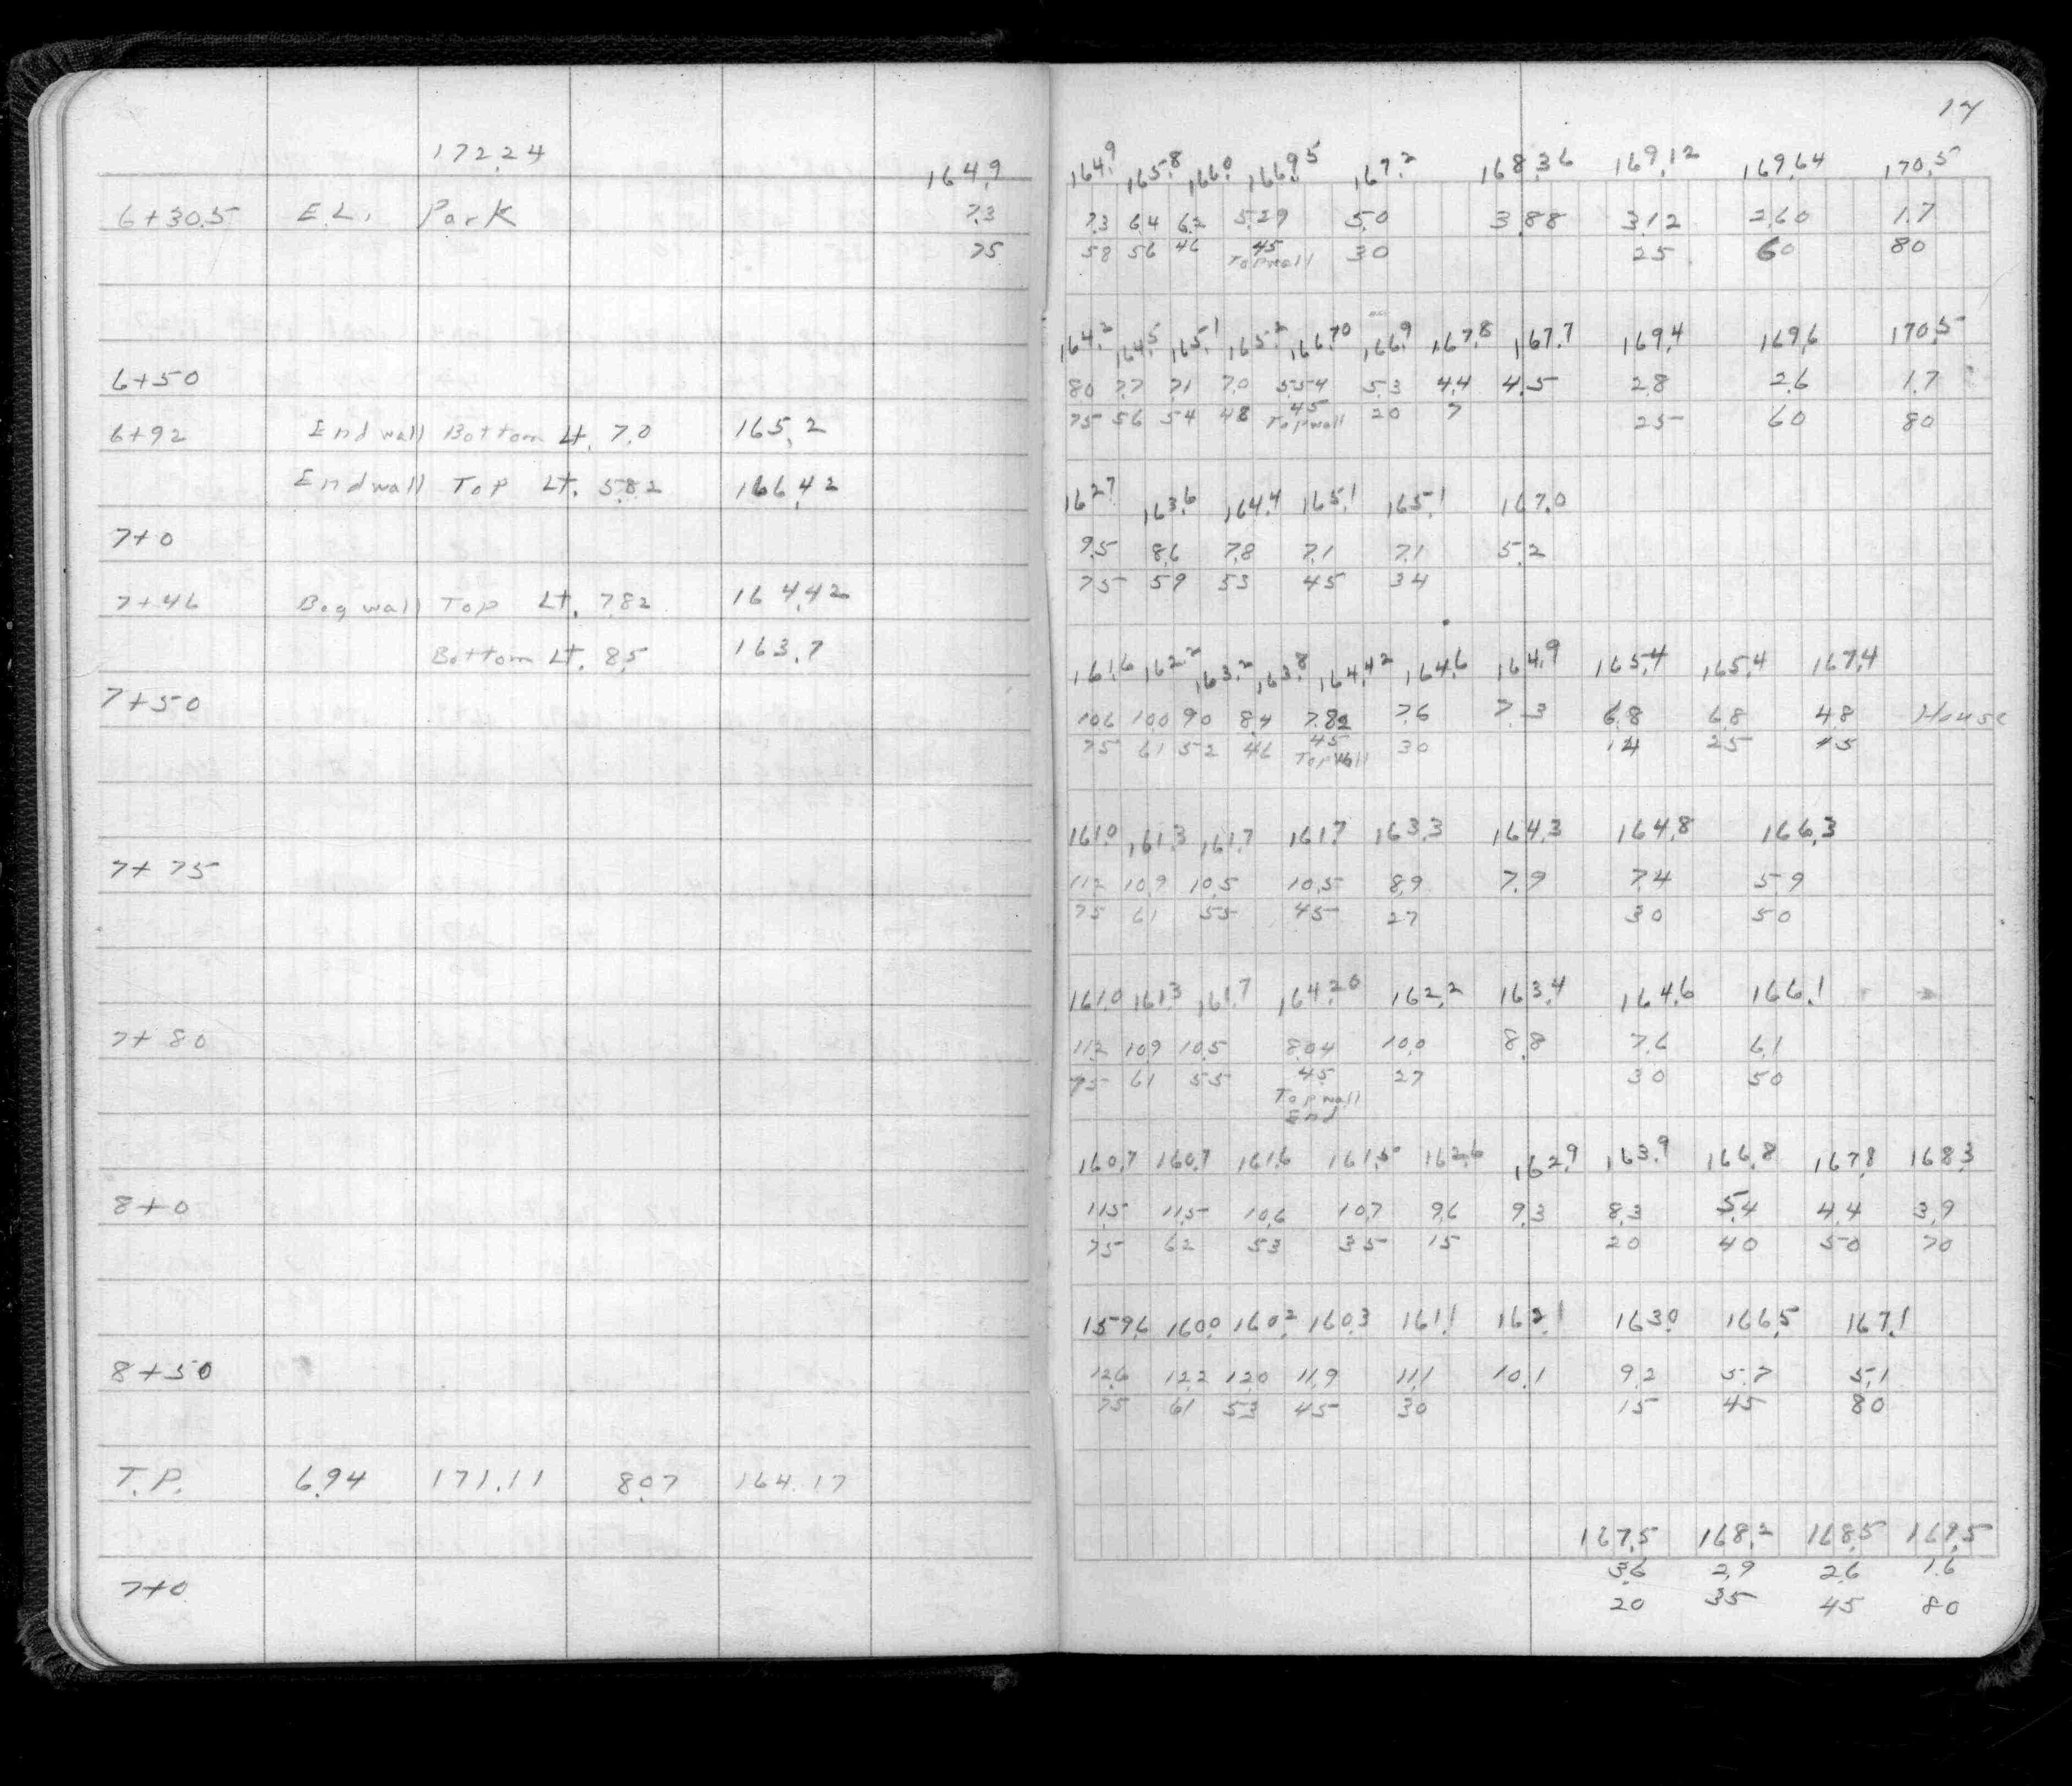 17
172.24
164.9 164.9 165.8 166.0 166.95 167.2 168.36 169.12 169.64 170.5
6+30.5 E.L. Park 7.3 7.3 6.4 6.2 5.29 5.0 3.88 3.12 2.60 1.7
75 58 56 46 45 30 25 60 80
Top wall
164.2 164.5 165.1 165.2 166.70 166.9 167.8 167.7 169.4 169.6 170.5
6+50 8.0 7.7 7.1 7.0 5.54 5.3 4.4 4.5 2.8 2.6 1.7
75 56 54 48 45 20 7 25 60 80
Top wall
6+92 End wall Bottom Lt. 7.0 165.2
End wall Top Lt. 5.82 166.42
162.7 163.6 164.4 165.1 165.1 167.0
7+0 9.5 8.6 7.8 7.1 7.1 5.2
75 59 53 45 34
7+46 Beg wall Top Lt. 7.82 164.42
Bottom Lt. 8.5 163.7
161.6 162.2 163.2 163.8 164.42 164.6 164.9 165.4 165.4 167.4
7+50 10.6 10.0 9.0 8.4 7.82 7.6 7.3 6.8 6.8 4.8 House
75 61 52 46 45 30 14 25 45
Top Wall
161.0 161.3 161.7 161.7 163.3 164.3 164.8 166.3
7+75 11.2 10.9 10.5 10.5 8.9 7.9 7.4 5.9
75 61 55 45 27 30 50
161.0 161.3 161.7 164.20 162.2 163.4 164.6 166.1
7+80 11.2 10.9 10.5 8.04 10.0 8.8 7.6 6.1
75 61 55 45 27 30 50
Top wall
End
160.7 160.7 161.6 161.5 162.6 162.9 163.9 166.8 167.8 168.3
8+0 11.5 11.5 10.6 10.7 9.6 9.3 8.3 5.4 4.4 3.9
75 62 53 35 15 20 40 50 70
159.6 160.0 160.2 160.3 161.1 162.1 163.0 166.5 167.1
8+50 12.6 12.2 12.0 11.9 11.1 10.1 9.2 5.7 5.1
75 61 53 45 30 15 45 80
T.P. 6.94 171.11 8.07 164.17
167.5 168.2 168.5 169.5
7+0 3.6 2.9 2.6 1.6
20 35 45 80